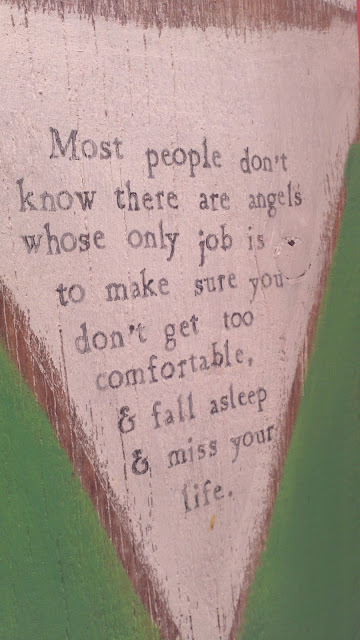 Most people don't
know there are angels
whose only job is
to make sure you
don't get too
comfortable,
& fall asleep
& miss your
life.